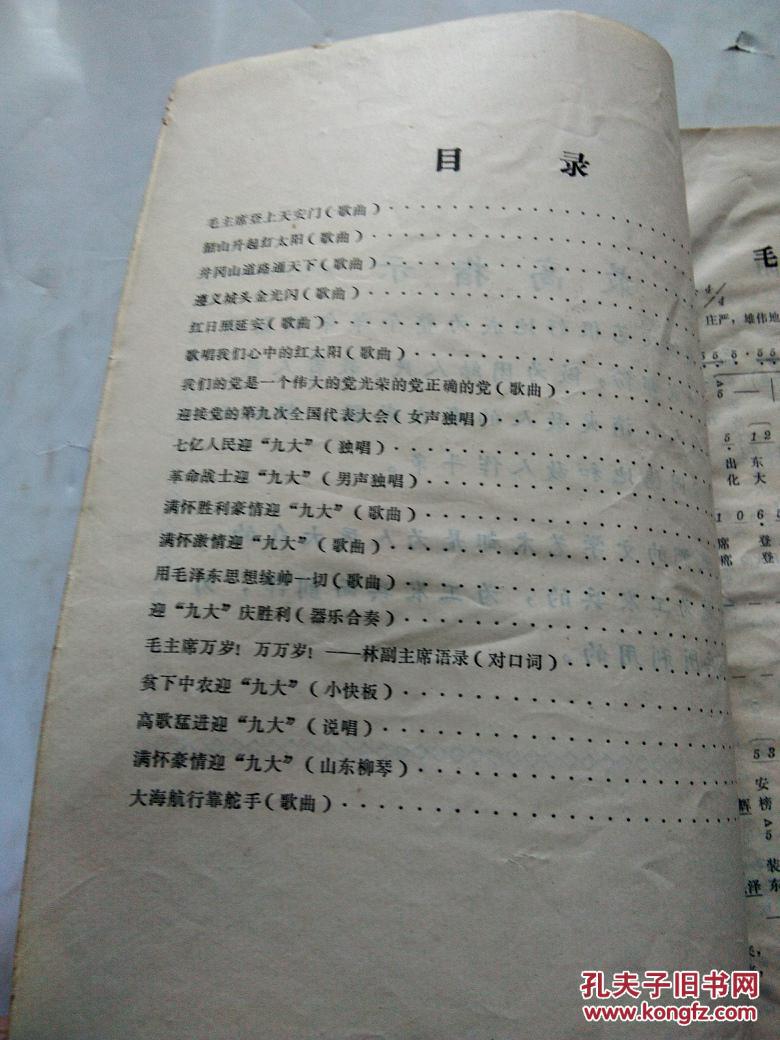 目 录
毛主席登上天安门(歌曲)
韶山升起红太阳(歌曲)
井冈山道路通天下(歌曲)
遵义城头金光闪(歌曲)
红日照延安(歌曲)
歌唱我们心中的红太阳(歌曲)
我们的党是一个伟大的党光荣的党正确的党(歌曲)
迎接党的第九次全国代表大会(女声独唱)
七亿人民迎“九大”(独唱)
革命战士迎“九大”(男声独唱)
满怀胜利豪情迎“九大”(歌曲)
满怀激情迎“九大”(歌曲)
用毛泽东思想统帅一切(歌曲)
迎“九大”庆胜利(器乐合奏)
毛主席万岁! 万万岁! ——林副主席语录(对口词)
贫下中农迎“九大”(小快板)
高歌猛进迎“九大”(说唱)
满怀豪情迎“九大”(山东柳琴)
大海航行靠舵手(歌曲)
毛
4/4
庄严, 雄伟地
出 东
化 大
1 0 6 5
席 登
席 登
5 3
安
榜
装
泽 东
孔夫子旧书网
www.kongfz.com